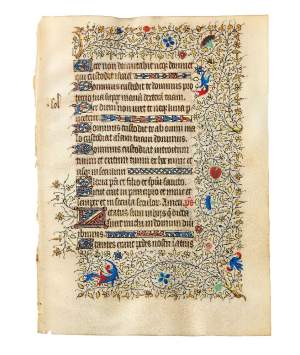 Ecce non dormitabit neqz dormiet
qui custodit israel
Dominus custodit te dominus pro
tectio tua super manū dexterā tuam.
Per diem non uret te neqz luna p
noctem
Dominus custodit te ab omni malo
custodiat aīam tuam
Dominus custodiat introitum
tuum et exitum tuum ex hoc nunc et
usqz in seculum
Gloria patri et filio et spū sancto.
Sicut erat in principio et nunc et
semper et in secula seculoꝝ Amen. ps
Letatus sum in hijs q̄ dicta
sunt michi in domum dñi
ibimus
Stantes erant pedes nostri in atrijs